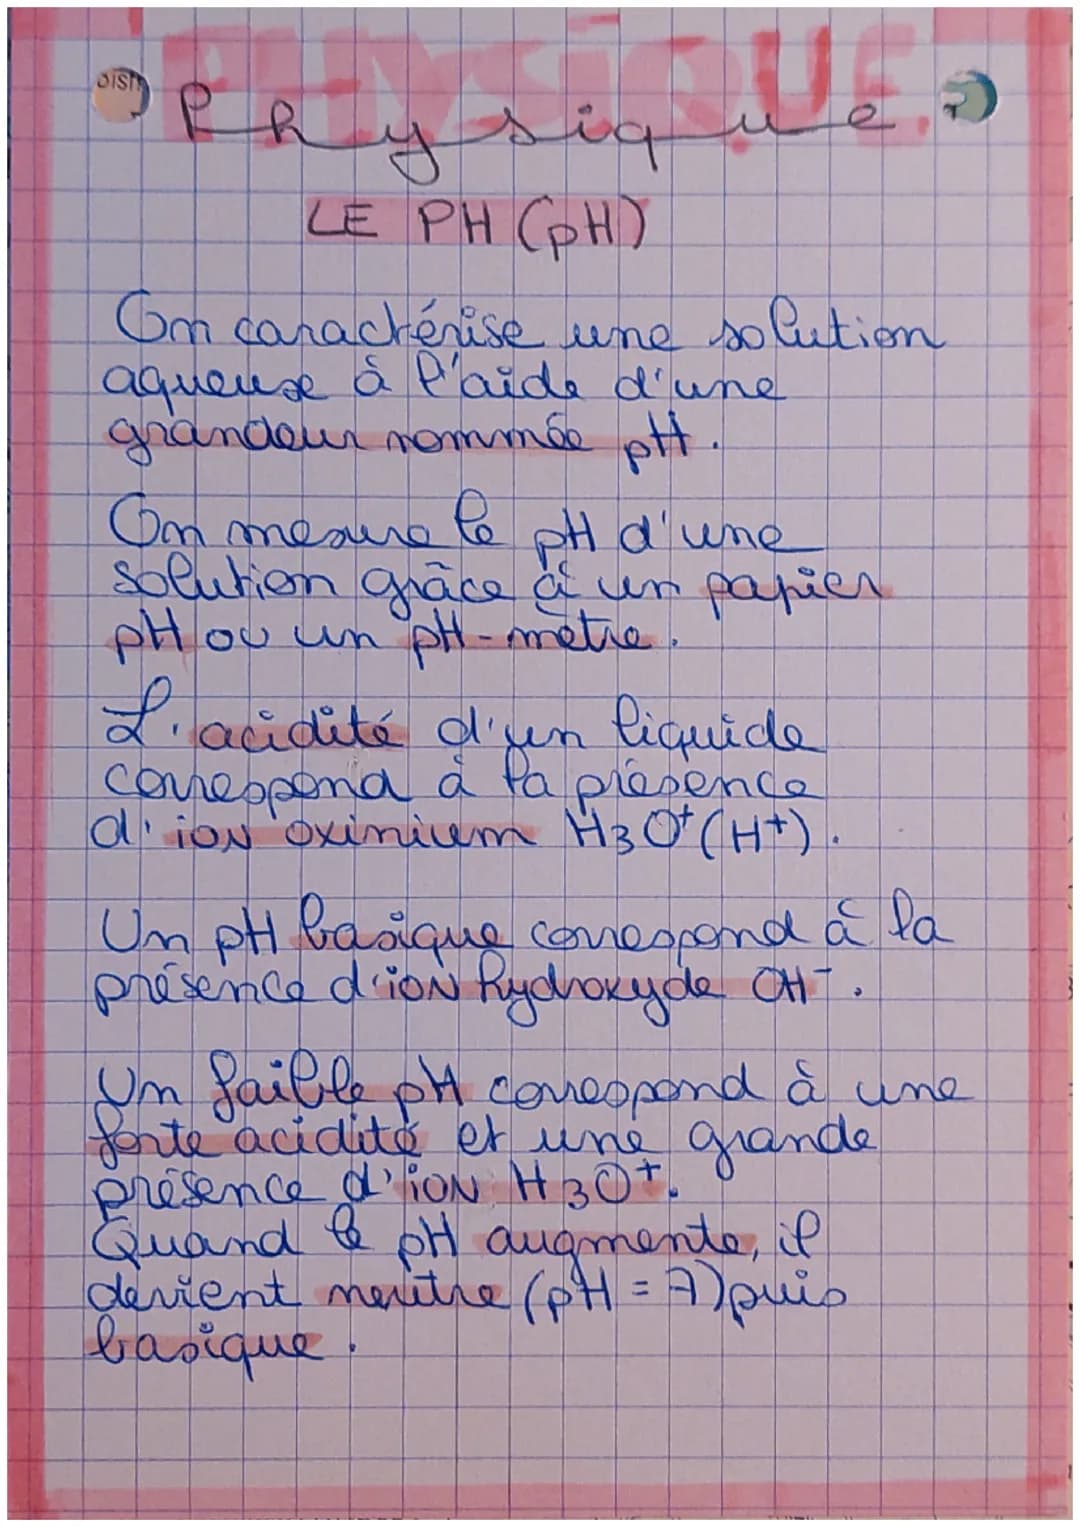 PHYSIQUE
Physique
LE PH (pH)
On caractérise une solution
aqueuse à l'aide d'une
grandeur nommée pH.
On mesure le pH d'une
solution grâce à un papier
pH ou un pH-mètre.
L'acidité d'un liquide
correspond à la présence
d'ion oxinium H3O+(H+).
Un pH basique correspond à la
présence d'ion hydroxyde OH-.
Un faible pH correspond à une
forte acidité et une grande
présence d'ion H3O+.
Quand le pH augmente, il
devient neutre (pH = 7) puis
basique.